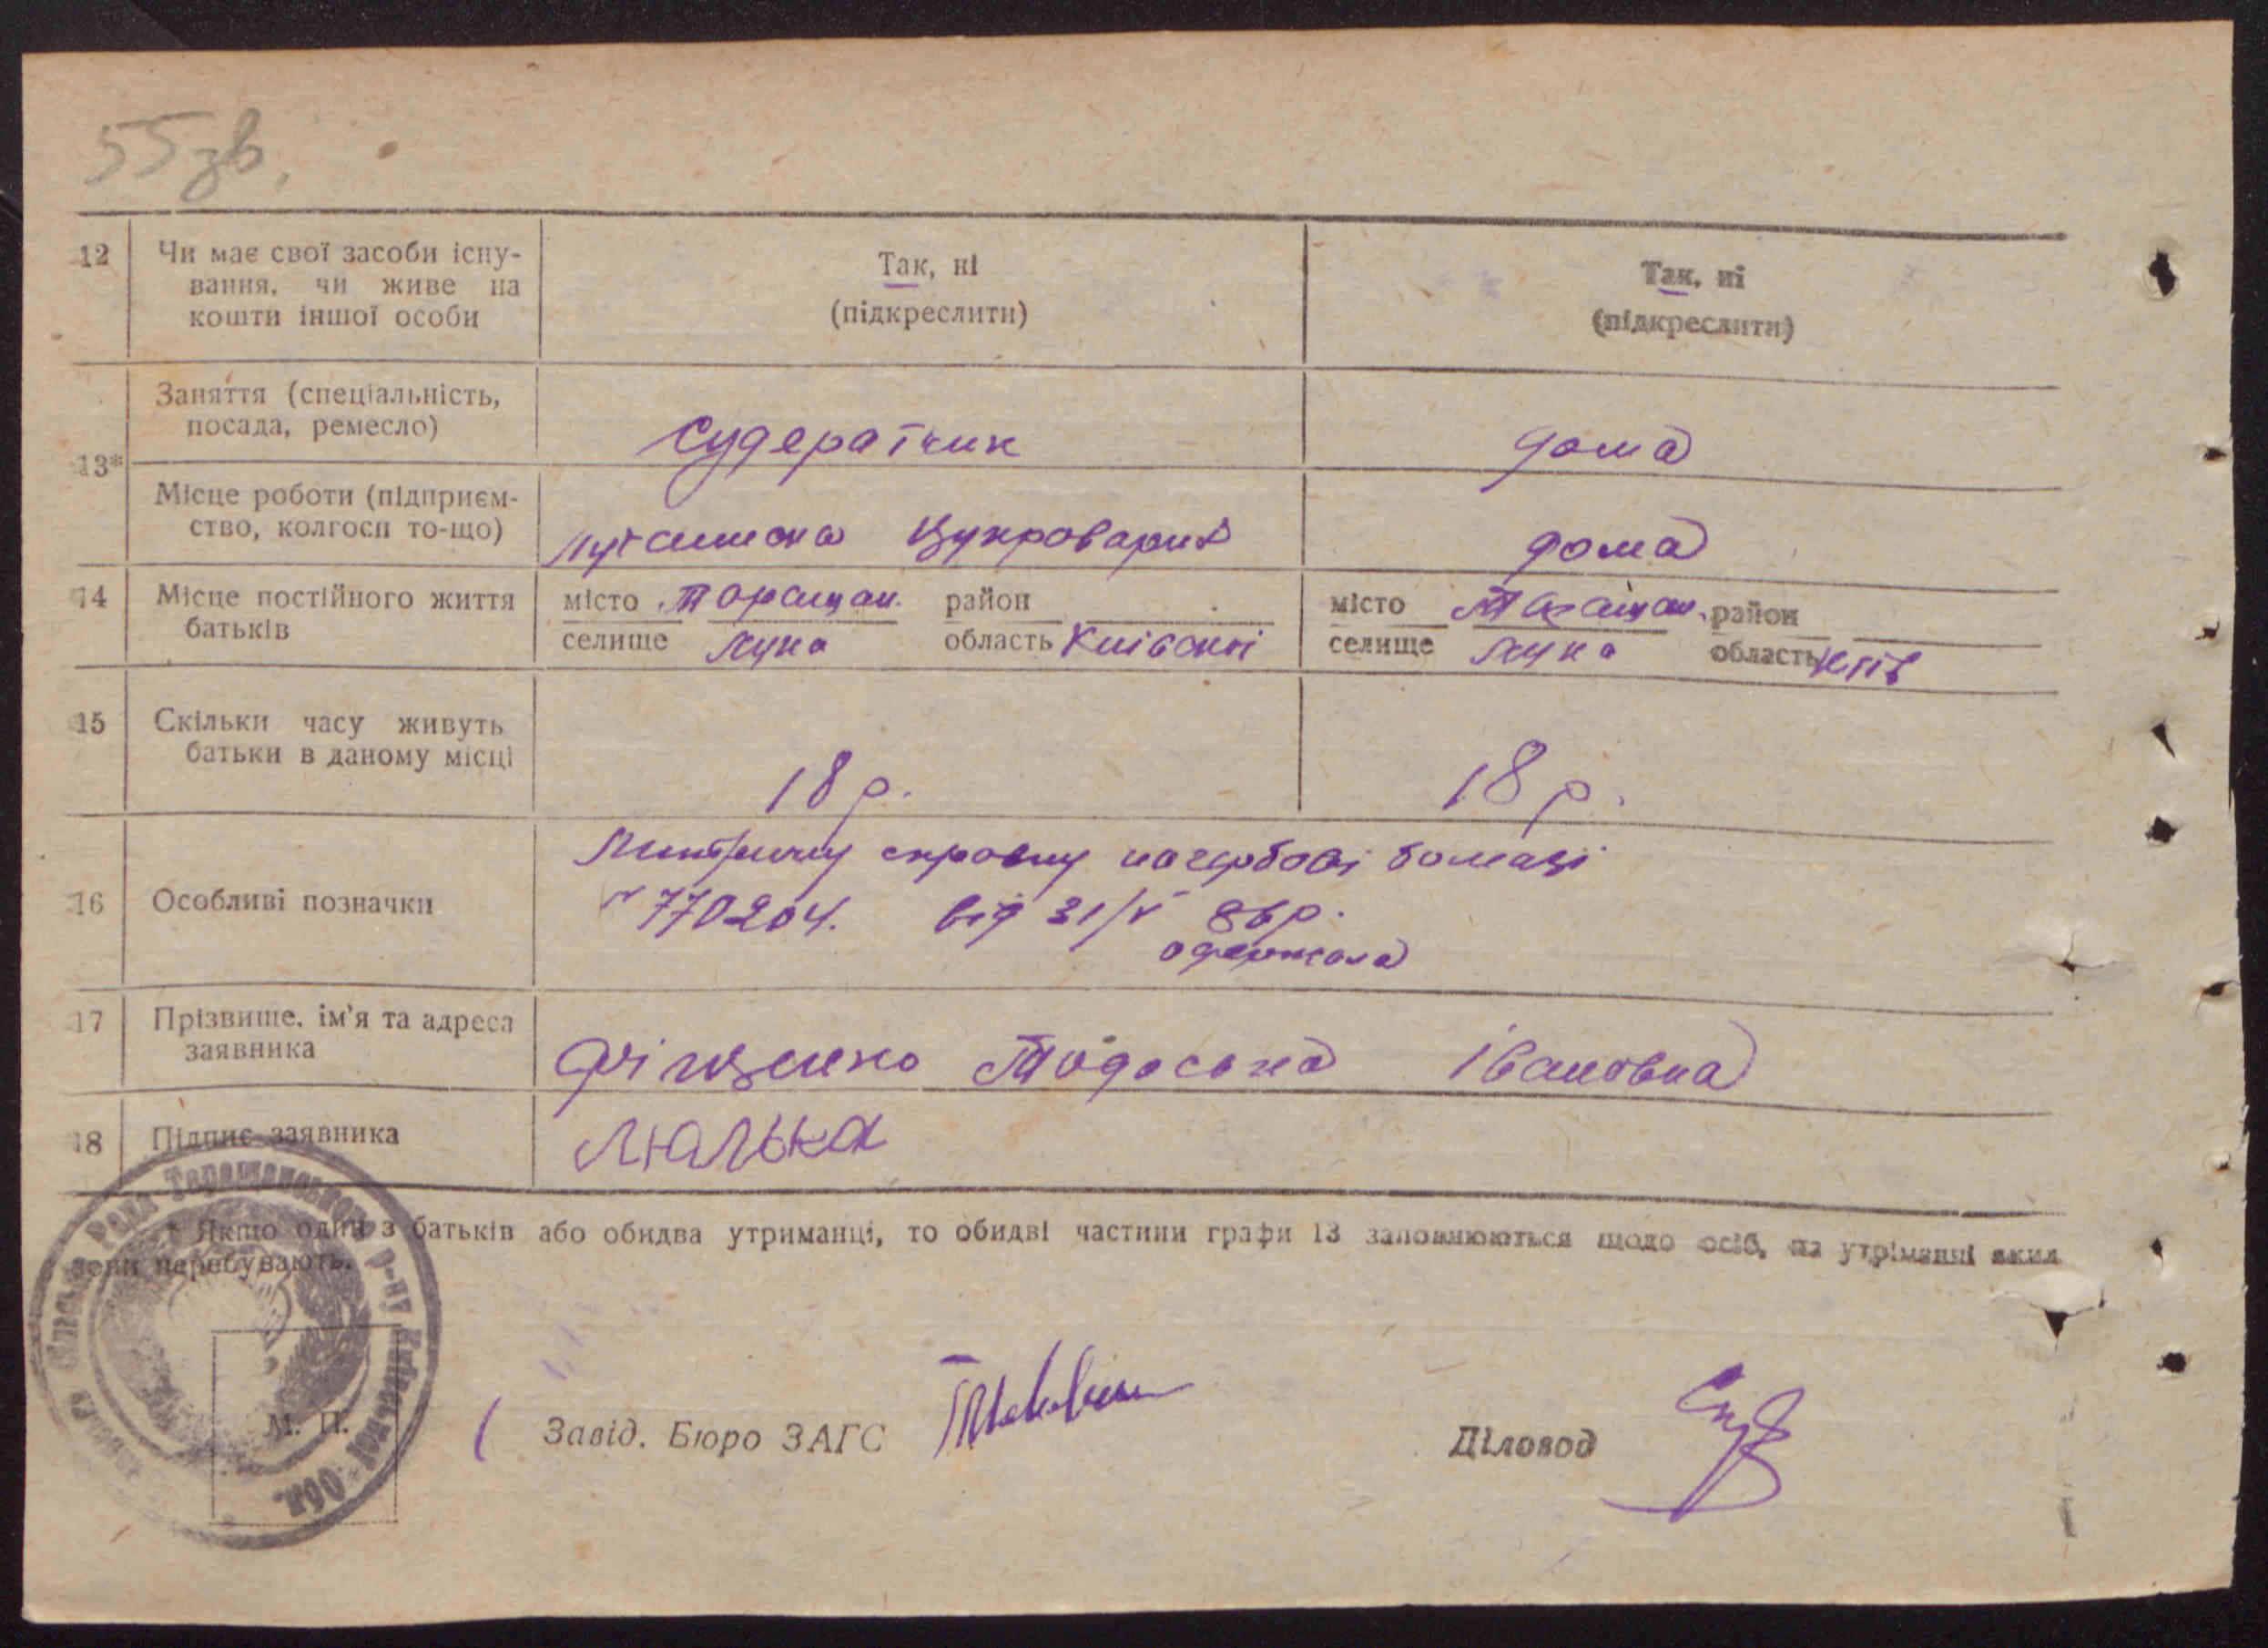 55зв.
12 Чи має свої засоби існу-
вання, чи живе на
кошти іншої особи
Так, ні
(підкреслити)
Так, ні
(підкреслити)
13*
Заняття (спеціальність,
посада, ремесло)
дома
Місце роботи (підприєм-
ство, колгосп то-що)
Цукроварня
дома
14 Місце постійного життя
батьків
місто Таращан. район
селище Лука область Київські
місто Таращан. район
селище Лука область Київ
15 Скільки часу живуть
батьки в даному місці
18 р.
18 р.
16 Особливі позначки
770204. від 31/V 36р.
одержала
17 Прізвище, ім'я та адреса
заявника
Тодоська Івановна
18 Підпис заявника
Люлька
* Якщо один з батьків або обидва утриманці, то обидві частини графи 13 заповнюються щодо осіб, на утріманні яких
вони перебувають.
Рада Таращанського р-ну Київської Обл.
М. П.
Завід. Бюро ЗАГС
Діловод